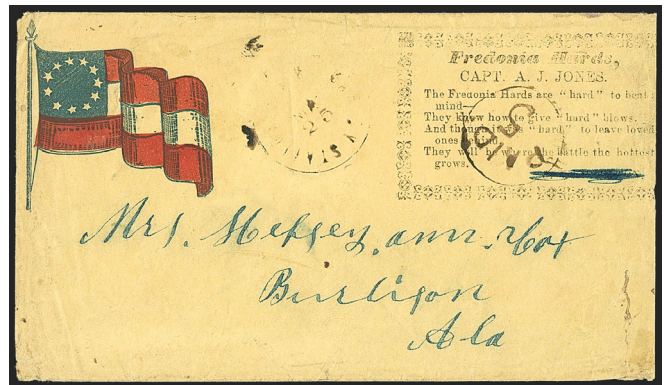 Fredonia Hards,
CAPT. A. J. JONES.
The Fredonia Hards are "hard" to beat:
mind—
They know how to give "hard" blows.
And though "hard" to leave loved
ones
They will be where the battle the hottest
grows.
25
PAID
5
Mrs. Hepsey, ann. Cox
Burlison
Ala